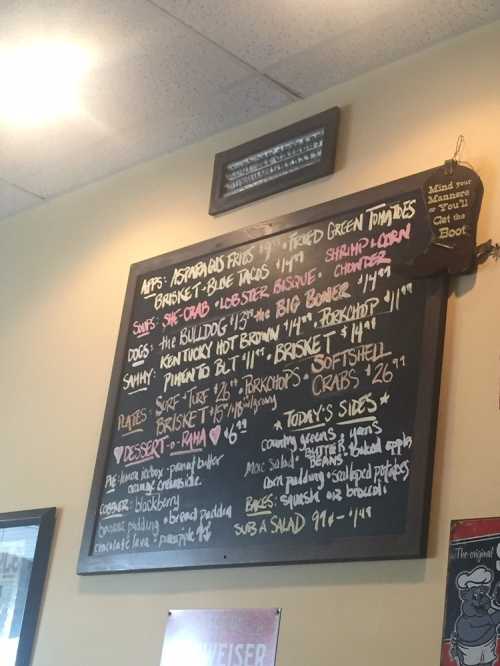 Mind your
Manners
or You'll
Get the
Boot
APPS: ASPARAGUS FRIES $9⁹⁹ • FRIED GREEN TOMATOES
BRISKET - BLUE TACOS $14⁹⁹
SOUPS: SHE-CRAB • LOBSTER BISQUE • SHRIMP & CORN CHOWDER
DOGS: the BULLDOG $13⁹⁹ the BIG BOWER $14⁹⁹
SAMMY: KENTUCKY HOT BROWN $14⁹⁹ • PORKCHOP $11⁹⁹
PIMENTO BLT $11⁹⁹ • BRISKET $14⁹⁹
PLATES: SURF + TURF $26⁹⁹ • PORKCHOPS • SOFTSHELL CRABS $26⁹⁹
BRISKET
DESSERT-O-RAMA $6⁹⁹
PIE: lemon icebox - peanut butter
orange creamsicle
COBBLER: blackberry
banana pudding • bread pudding
chocolate lava • pineapple
★ TODAY'S SIDES ★
country greens • yams
Mac Salad • BUTTER BEANS • baked apples
corn pudding • scalloped potatoes
BAKES: squash or broccoli
SUB A SALAD 99¢ - $1⁴⁹
WEISER
The original